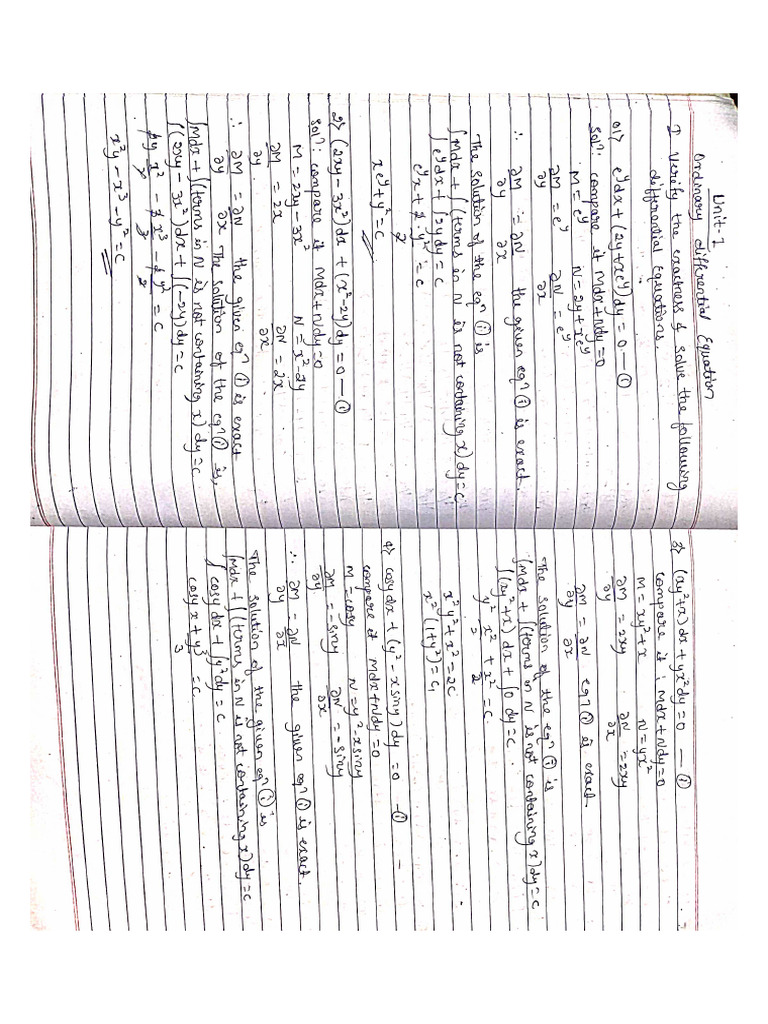 Unit-1
Ordinary differential Equation
I Verify the exactness & solve the following
differential Equations.
01) e^y dx + (2y + xe^y) dy = 0 — ①
solⁿ: compare it Mdx + Ndy = 0
M = e^y N = 2y + xe^y
∂M/∂y = e^y ∂N/∂x = e^y
∴ ∂M/∂y = ∂N/∂x the given eqⁿ ① is exact.
The solution of the eqⁿ ① is
∫Mdx + ∫(terms in N is not containing x) dy = c
∫e^y dx + ∫2y dy = c
e^y x + 2·y²/2 = c
xe^y + y² = c
2) (2xy - 3x²) dx + (x² - 2y) dy = 0 — ①
solⁿ: compare it Mdx + Ndy = 0
M = 2xy - 3x² N = x² - 2y
∂M/∂y = 2x ∂N/∂x = 2x
∴ ∂M/∂y = ∂N/∂x the given eqⁿ ① is exact
The solution of the eqⁿ ① is,
∫Mdx + ∫(terms in N is not containing x) dy = c
∫(2xy - 3x²) dx + ∫(-2y) dy = c
2y x²/2 - 3x³/3 - 2y²/2 = c
x²y - x³ - y² = c
3) (xy² + x) dx + yx² dy = 0 — ①
compare it : Mdx + Ndy = 0
M = xy² + x N = yx²
∂M/∂y = 2xy ∂N/∂x = 2xy
∂M/∂y = ∂N/∂x eqⁿ ① is exact
The solution of the eqⁿ ① is
∫Mdx + ∫(terms in N is not containing x) dy = c
∫(xy² + x) dx + ∫0 dy = c.
y² x²/2 + x²/2 = c.
x²y² + x² = 2c
x² (1 + y²) = c₁
4) cosy dx + (y² - x siny) dy = 0 — ①
compare it Mdx + Ndy = 0
M = cosy N = y² - x siny
∂M/∂y = -siny ∂N/∂x = -siny
∴ ∂M/∂y = ∂N/∂x the given eqⁿ ① is exact.
The solution of the given eqⁿ ① is
∫Mdx + ∫(terms in N is not containing x) dy = c
∫cosy dx + ∫y² dy = c
cosy x + y³/3 = c.